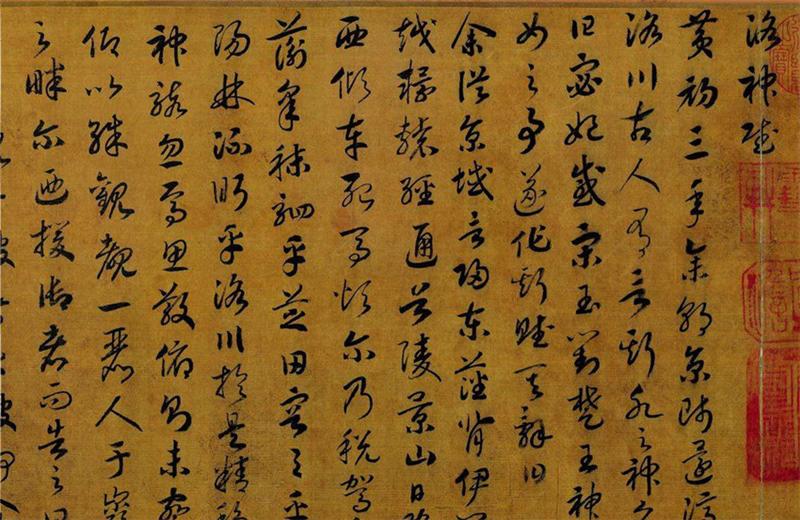 洛神賦
黃初三年余朝京師還濟
洛川古人有言斯水之神名
曰宓妃感宋玉對楚王神
女之事遂作斯賦其辭曰
余從京域言歸東藩背伊闕
越轘轅經通谷陵景山日既
西傾車殆馬煩尔乃稅駕
蘅皋秣駟乎芝田容与乎
陽林流眄乎洛川於是精移
神駭忽焉思散俯則未察
仰以殊觀覩一麗人于巖
之畔尔迺援御者而告之曰